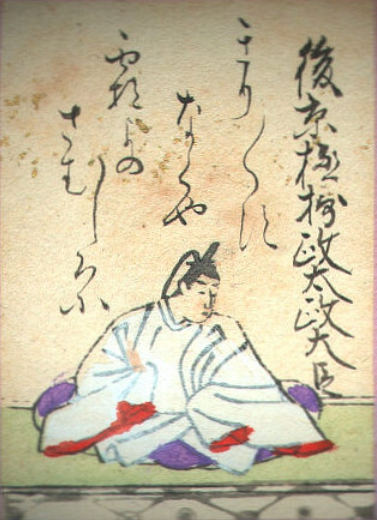 後京極摂政太政大臣
きり〱す
なくや
霜よの
さむしろに